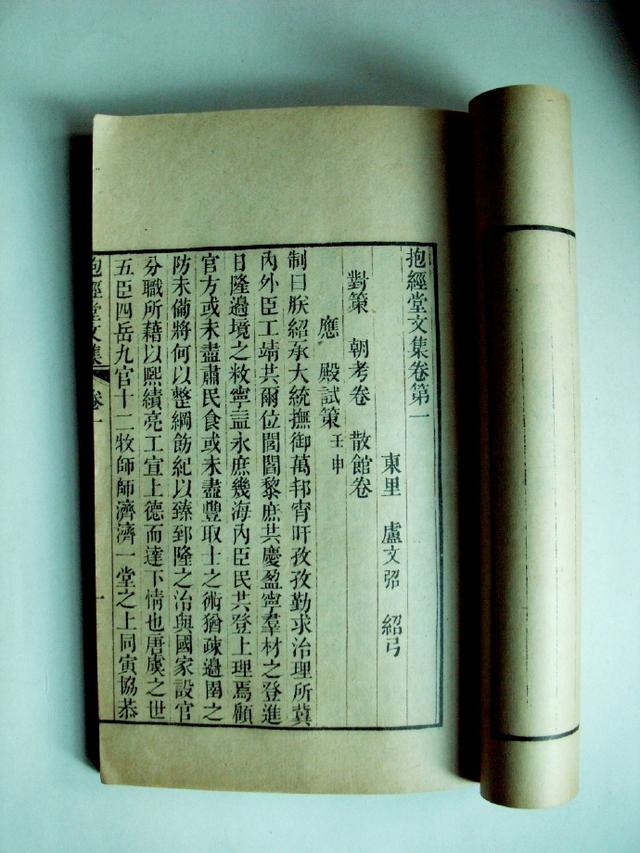 抱經堂文集卷第一
東里 盧文弨 紹弓
對策 朝考卷 散館卷
應 殿試策壬申
制曰朕紹承大統撫御萬邦宵旰孜孜勤求治理所冀
內外臣工靖共爾位閭閻黎庶共慶盈寧羣材之登進
日隆邊境之敉寧益永庶幾海內臣民共登上理焉顧
官方或未盡肅民食或未盡豐取士之術猶疎邊圉之
防未備將何以整綱飭紀以臻郅隆之治與國家設官
分職所藉以熙績亮工宣上德而達下情也唐虞之世
五臣四岳九官十二牧師師濟濟一堂之上同寅協恭
抱經堂文集 卷一 一